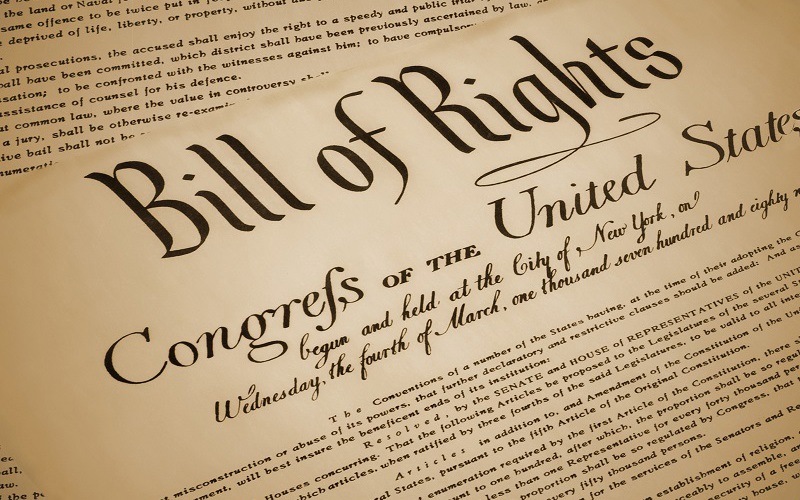 the land or Naval
same offence to be twice put in
deprived of life, liberty, or property, without
prosecutions, the accused shall enjoy the right to a speedy and public trial
have been committed, which district shall have been previously ascertained by law,
to be confronted with the witnesses against him; to have
assistance of counsel for his defence.
common law, where the value in controversy
a jury, shall be otherwise
bail shall not be
Bill of Rights
Congreſs OF THE United States
begun and held at the City of New York, on
Wednesday, the fourth of March, one thousand seven hundred and eighty
The Conventions of a number of the States having, at the time of their adopting the
misconstruction or abuse of its powers, that further declaratory and restrictive clauses should be added: And
will best insure the beneficent ends of its institution:
Resolved, by the SENATE and HOUSE of REPRESENTATIVES of the
Houses concurring. That the following Articles be proposed to the Legislatures of the several
which articles, when ratified by three fourths of the said Legislatures, to be valid to all
Articles in addition to, and Amendment of the Constitution of the
States, pursuant to the fifth Article of the Original Constitution.
enumeration required by the first Article of the Constitution, there
to one hundred, after which, the proportion shall be so
Representative for every forty thousand
proportion shall be so regulated by Congress, that
every fifty thousand persons.
for the services of the Senators and
establishment of religion,
to assemble, and
of a free